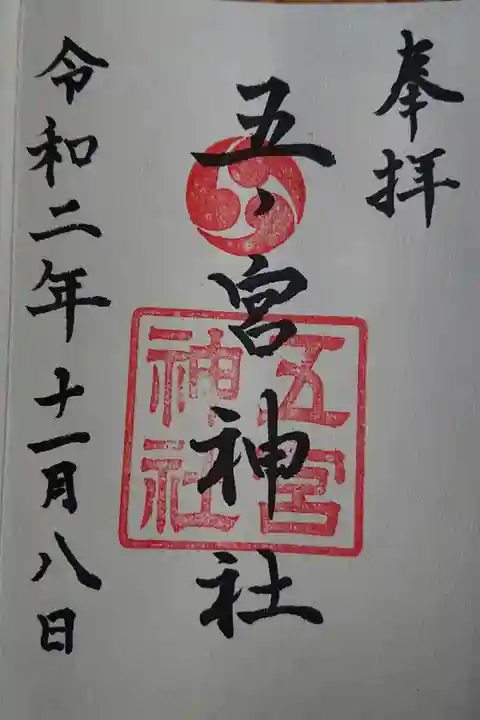 奉拝
五、宮神社
五宮神社
令和二年十一月八日